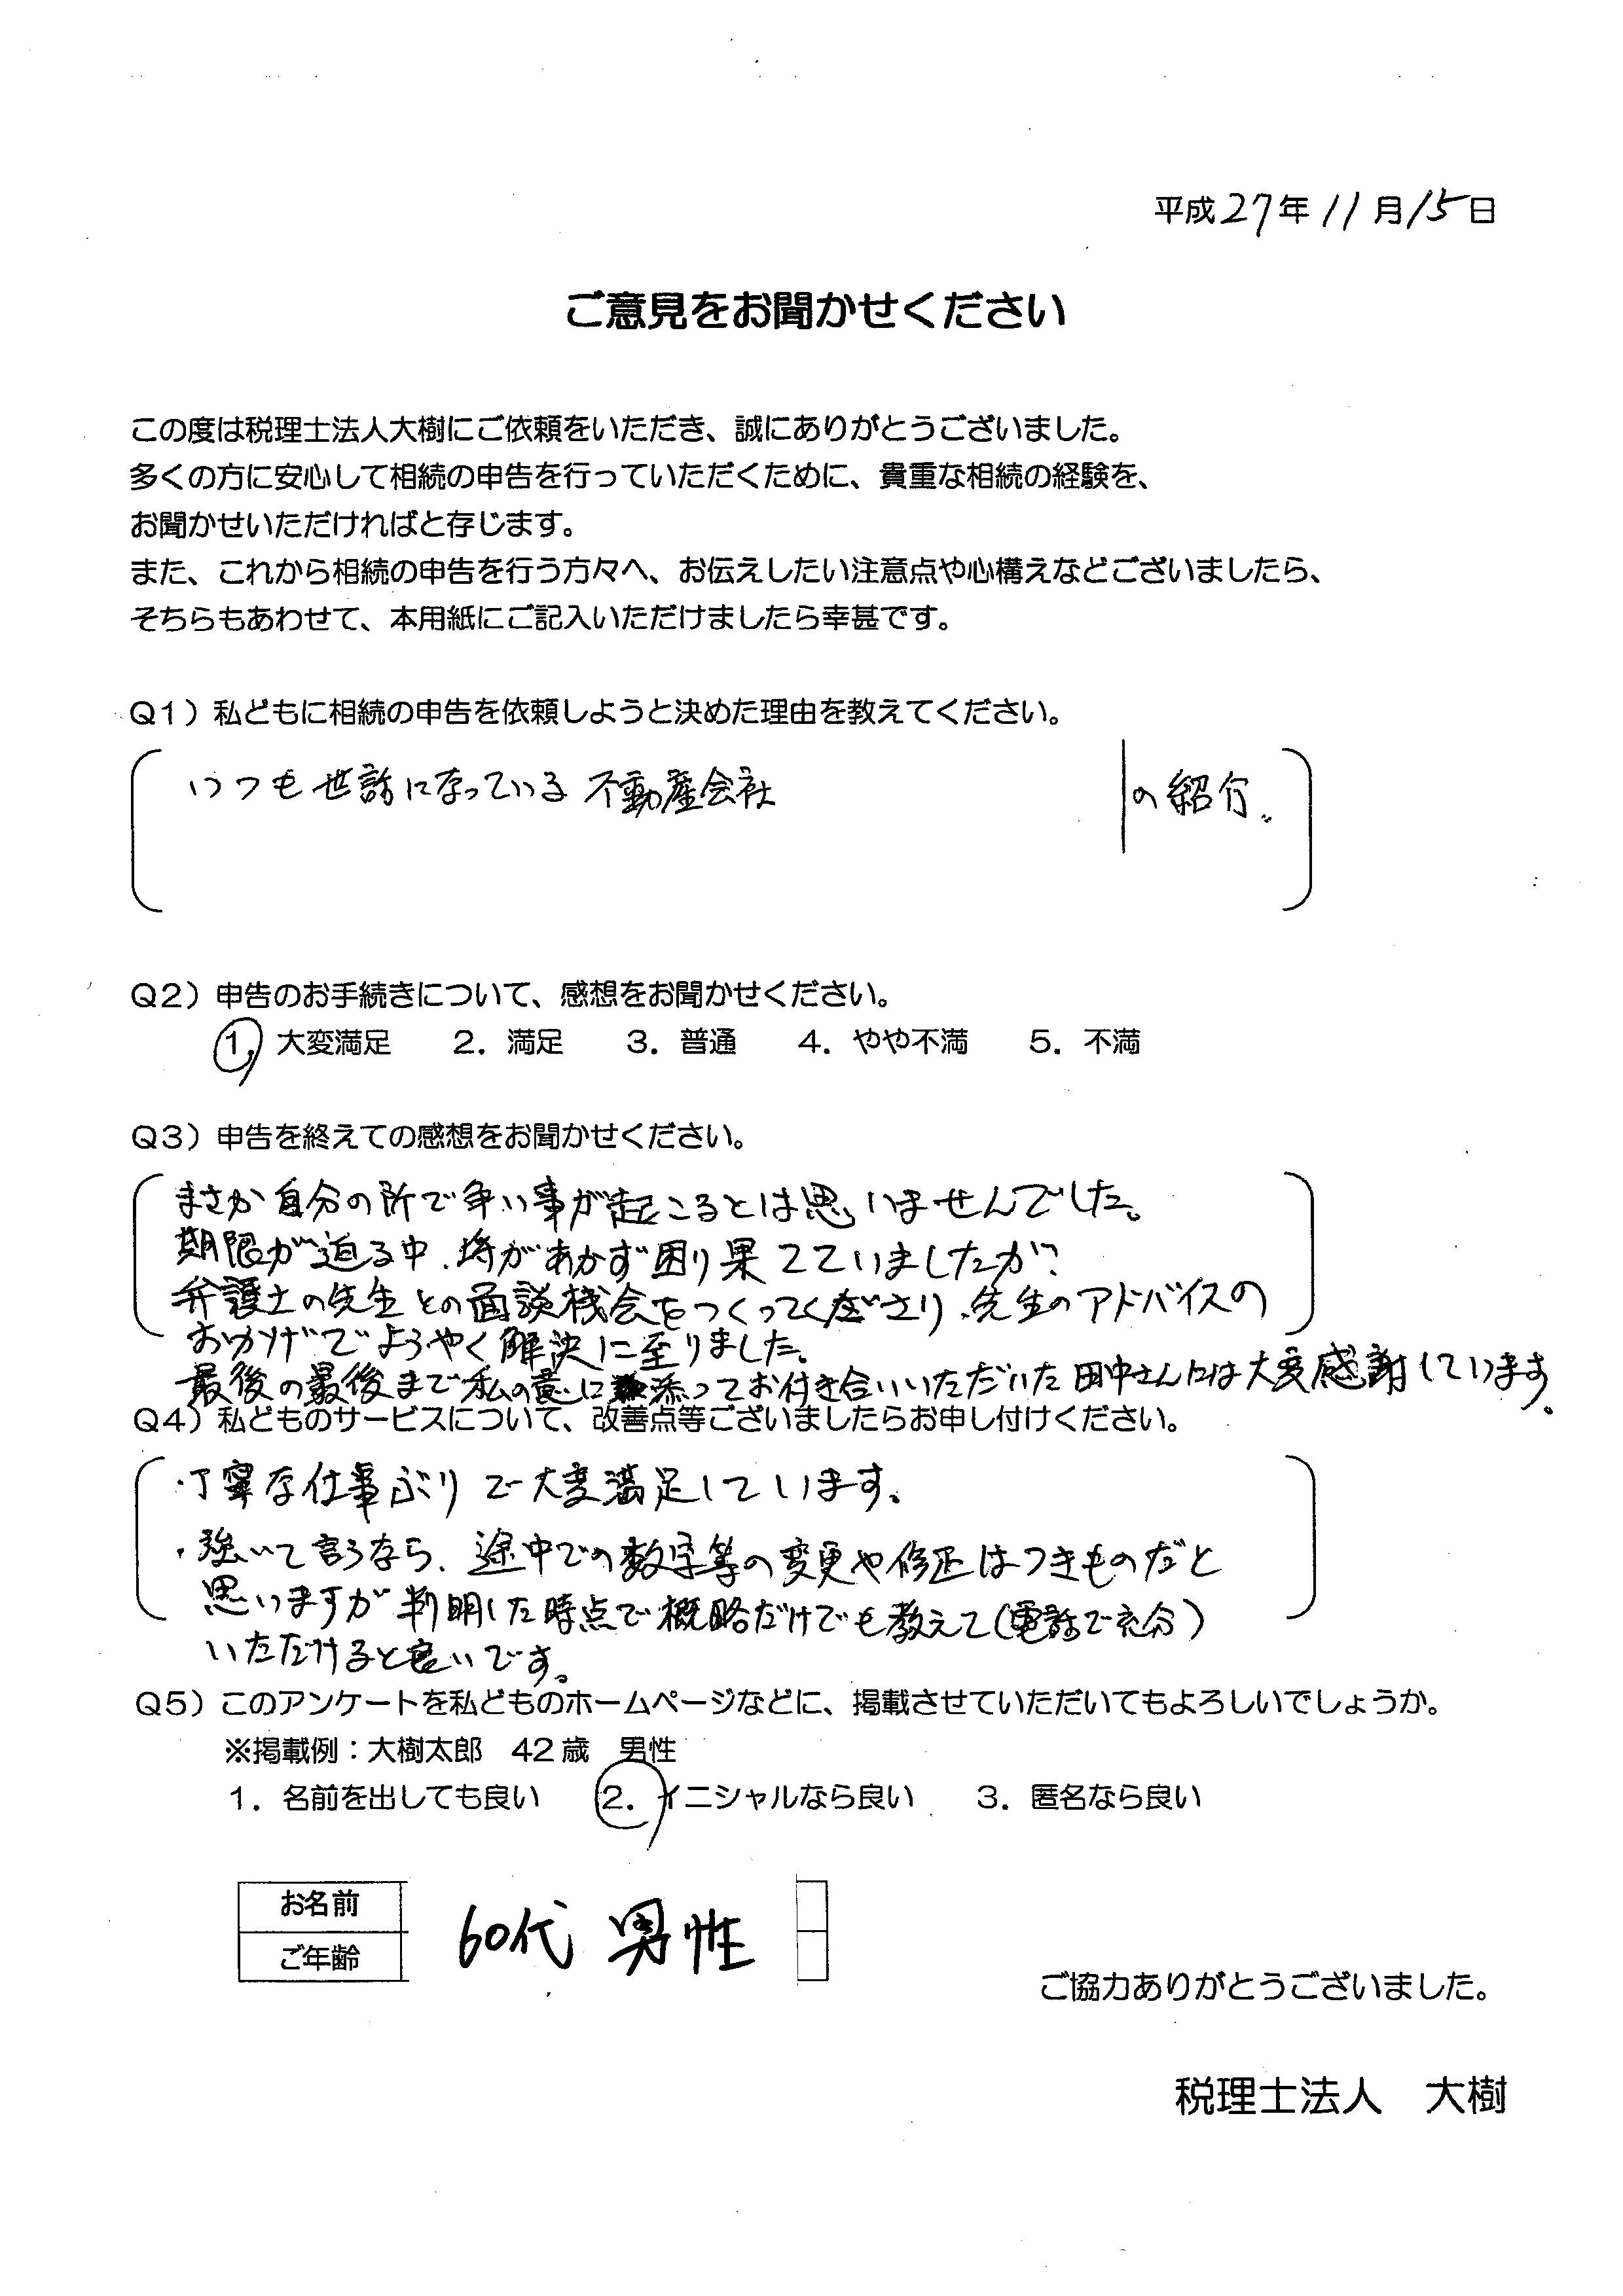 平成27年11月15日
ご意見をお聞かせください
この度は税理士法人大樹にご依頼をいただき、誠にありがとうございました。
多くの方に安心して相続の申告を行っていただくために、貴重な相続の経験を、
お聞かせいただければと存じます。
また、これから相続の申告を行う方々へ、お伝えしたい注意点や心構えなどございましたら、
そちらもあわせて、本用紙にご記入いただけましたら幸甚です。
Q1）私どもに相続の申告を依頼しようと決めた理由を教えてください。
いつも世話になっている不動産会社 の紹介。
Q2）申告のお手続きについて、感想をお聞かせください。
1. 大変満足 2. 満足 3. 普通 4. やや不満 5. 不満
Q3）申告を終えての感想をお聞かせください。
まさか自分の所で争い事が起こるとは思いませんでした。
期限が迫る中、埒があかず困り果てていましたが
弁護士の先生との面談機会をつくってくださり、先生のアドバイスの
おかげでようやく解決に至りました。
最後の最後まで私の意に添ってお付き合いいただいた田中さんには大変感謝しています。
Q4）私どものサービスについて、改善点等ございましたらお申し付けください。
・丁寧な仕事ぶりで大変満足しています。
・強いて言うなら、途中での数字等の変更や修正はつきものだと
思いますが判明した時点で概略だけでも教えて(電話で充分)
いただけると良いです。
Q5）このアンケートを私どものホームページなどに、掲載させていただいてもよろしいでしょうか。
※掲載例：大樹太郎 42歳 男性
1. 名前を出しても良い 2. イニシャルなら良い 3. 匿名なら良い
お名前
ご年齢
60代 男性
ご協力ありがとうございました。
税理士法人 大樹